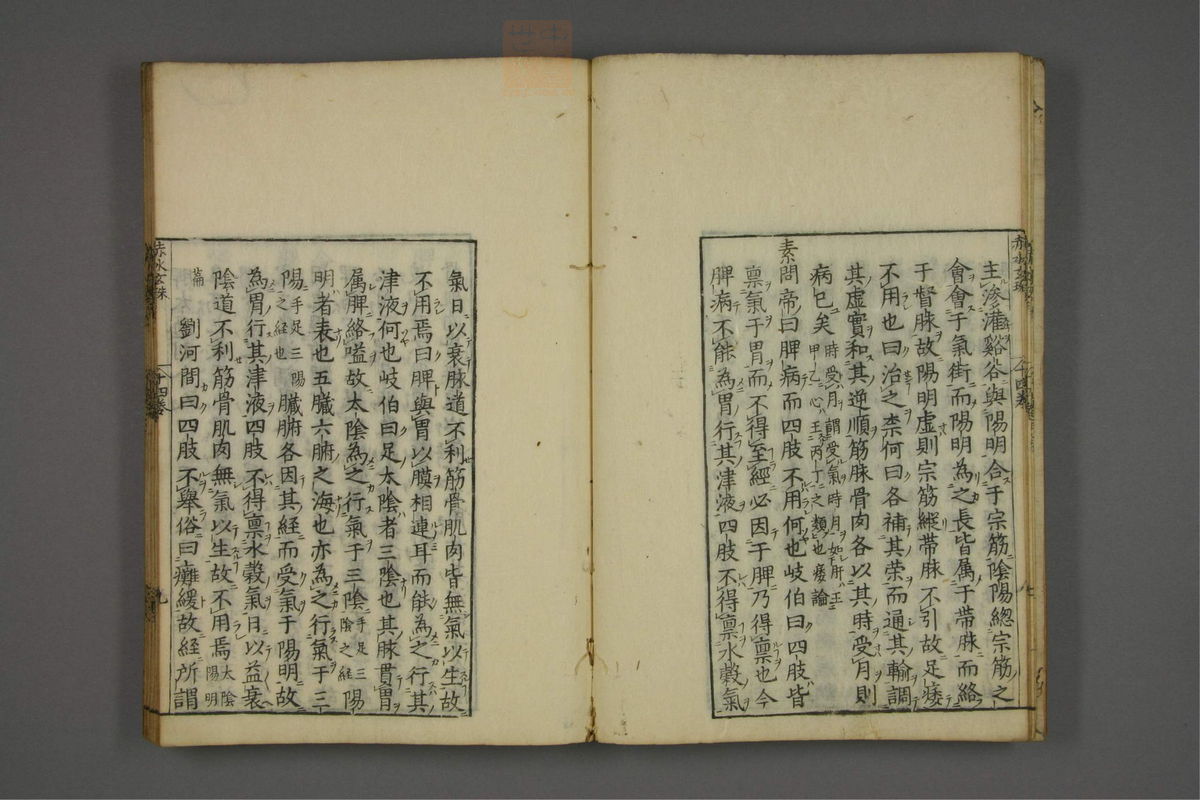 主滲灌谿谷與陽明合于宗筋陰陽總宗筋之
會會于氣街而陽明為之長皆属于帶脉而絡
于督脉故陽明虚則宗筋縱帶脉不引故足痿
不用也曰治之柰何曰各補其荣而通其輸調
其虚實和其逆順筋脉骨肉各以其時受月則
病已矣時受月謂受氣時月如肝王甲乙心王丙丁之類也痿論
素問帝曰脾病而四肢不用何也岐伯曰四肢皆
禀氣于胃而不得至經必因于脾乃得禀也今
脾病不能為胃行其津液四肢不得禀水穀氣
氣日以衰脉道不利筋骨肌肉皆無氣以生故
不用焉曰脾與胃以膜相連耳而能為之行其
津液何也岐伯曰足太陰者三陰也其脉貫胃
属脾絡嗌故太陰為之行氣于三陰手足三陰之經陽
明者表也五臟六腑之海也亦為之行氣于三
陽手足三陽之經也臟腑各因其經而受氣于陽明故
為胃行其津液四肢不得禀水穀氣日以益衰
陰道不利筋骨肌肉無氣以生故不用焉太陰陽明
篇劉河間曰四肢不舉俗曰癱緩故経所謂
赤水玄珠
十四卷
九